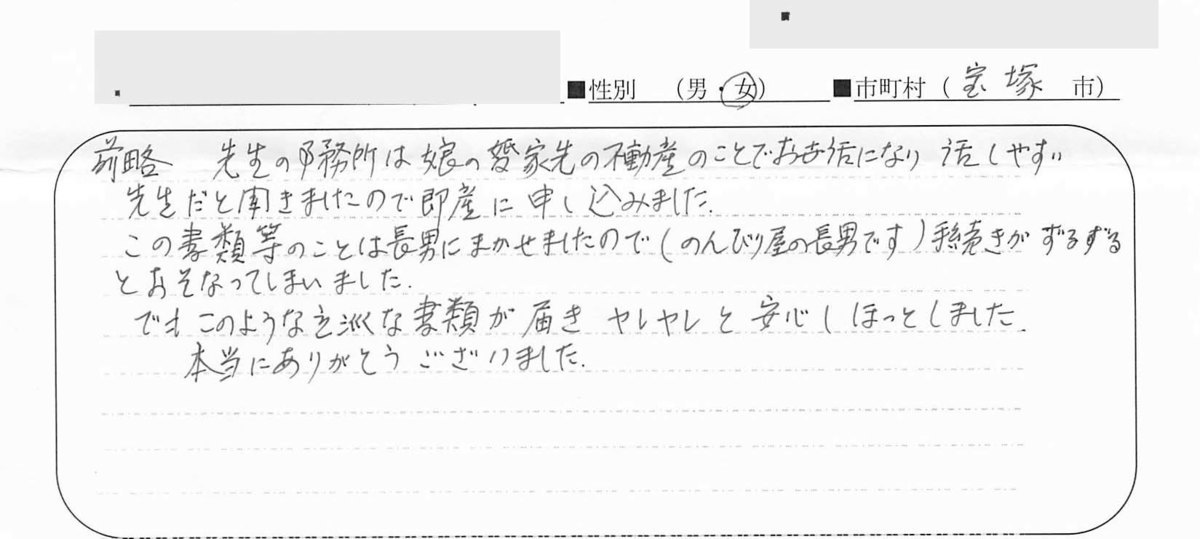 ■性別 (男・女) ■市町村 (宝塚 市)
前略 先生の事務所は娘の婚家先の不動産のことでお世話になり 話しやすい
先生だと聞きましたので即座に申し込みました.
この書類等のことは長男にまかせましたので(のんびり屋の長男です)手続きがずるずる
とおそなってしまいました.
でもこのような立派な書類が届きヤレヤレと安心しほっとしました.
本当にありがとうございました.